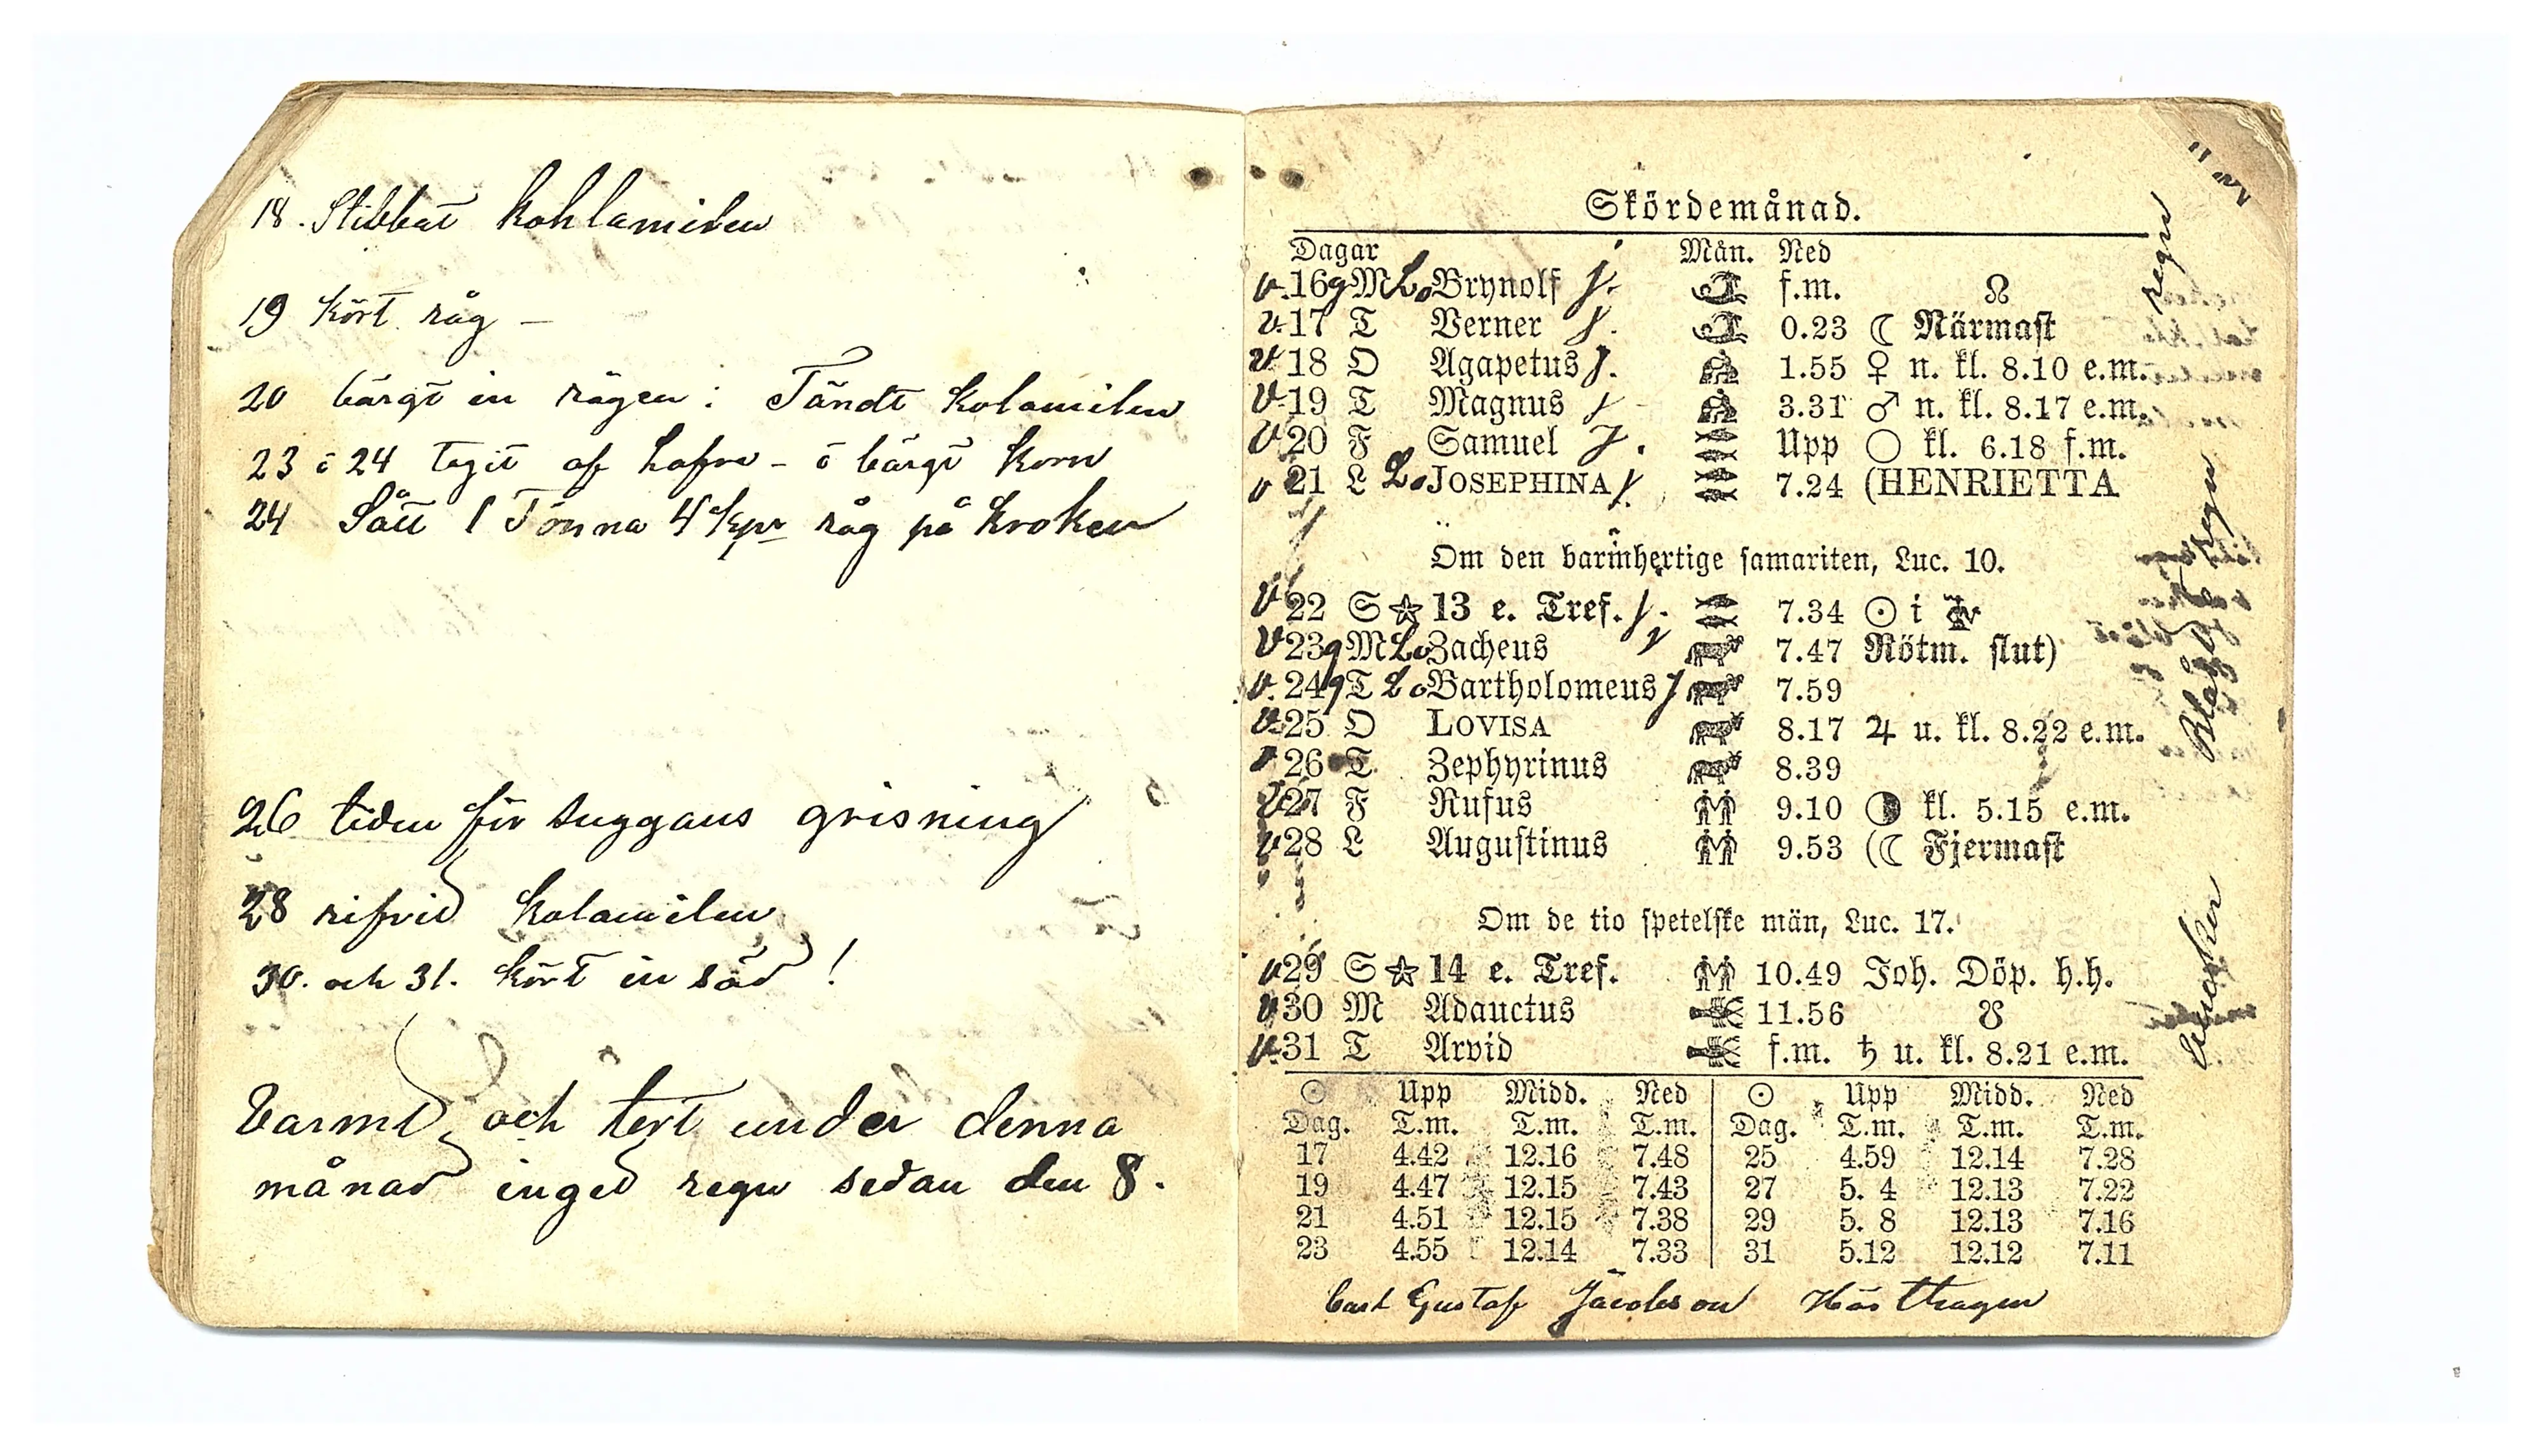 18. Stibbat kohlamilen
19 kört råg –
20 bärgt in rågen: Tändt kolamilen
23 o 24 tagit af hafre - o bärgt korn
24 Sått 1 Tönna 4 kpr råg på kroken
26 tiden för suggans grisning
28 rifvid kolamilen
30. och 31. kört in säd !
Varmt och tort under denna
månad inged regn sedan den 8.
Skördemånad.
Dagar Mån. Ned
v. 16 g M Lo Brynolf j. f.m. ☊
v. 17 T Verner j. 0.23 ☾ Närmast
v 18 O Agapetus j. 1.55 ♀ n. kl. 8.10 e.m.
v 19 T Magnus j 3.31 ♂ n. kl. 8.17 e.m.
v 20 F Samuel j. Upp ○ kl. 6.18 f.m.
v 21 L Lo JOSEPHINA j. 7.24 (HENRIETTA
Om den barmhertige samariten, Luc. 10.
v 22 S ☆ 13 e. Tref. j. 7.34 ☉ i ♍
v 23 g M Lo Zacheus j 7.47 Rötm. slut)
v. 24 g T Lo Bartholomeus j 7.59
v 25 O LOVISA 8.17 ♃ u. kl. 8.22 e.m.
v 26 T Zephyrinus 8.39
v 27 F Rufus 9.10 ◑ kl. 5.15 e.m.
v 28 L Augustinus 9.53 (☾ Fjermast
Om de tio spetelske män, Luc. 17.
v 29 S ☆ 14 e. Tref. 10.49 Joh. Döp. h.h.
v 30 M Adauctus 11.56 ☋
v. 31 T Arvid f.m. ♄ u. kl. 8.21 e.m.
☉ Upp Midd. Ned ☉ Upp Midd. Ned
Dag. T.m. T.m. T.m. Dag. T.m. T.m. T.m.
17 4.42 12.16 7.48 25 4.59 12.14 7.28
19 4.47 12.15 7.43 27 5. 4 12.13 7.22
21 4.51 12.15 7.38 29 5. 8 12.13 7.16
23 4.55 12.14 7.33 31 5.12 12.12 7.11
Carl Gustaf Jacobson Hästhagen
regn
regn
Blåst